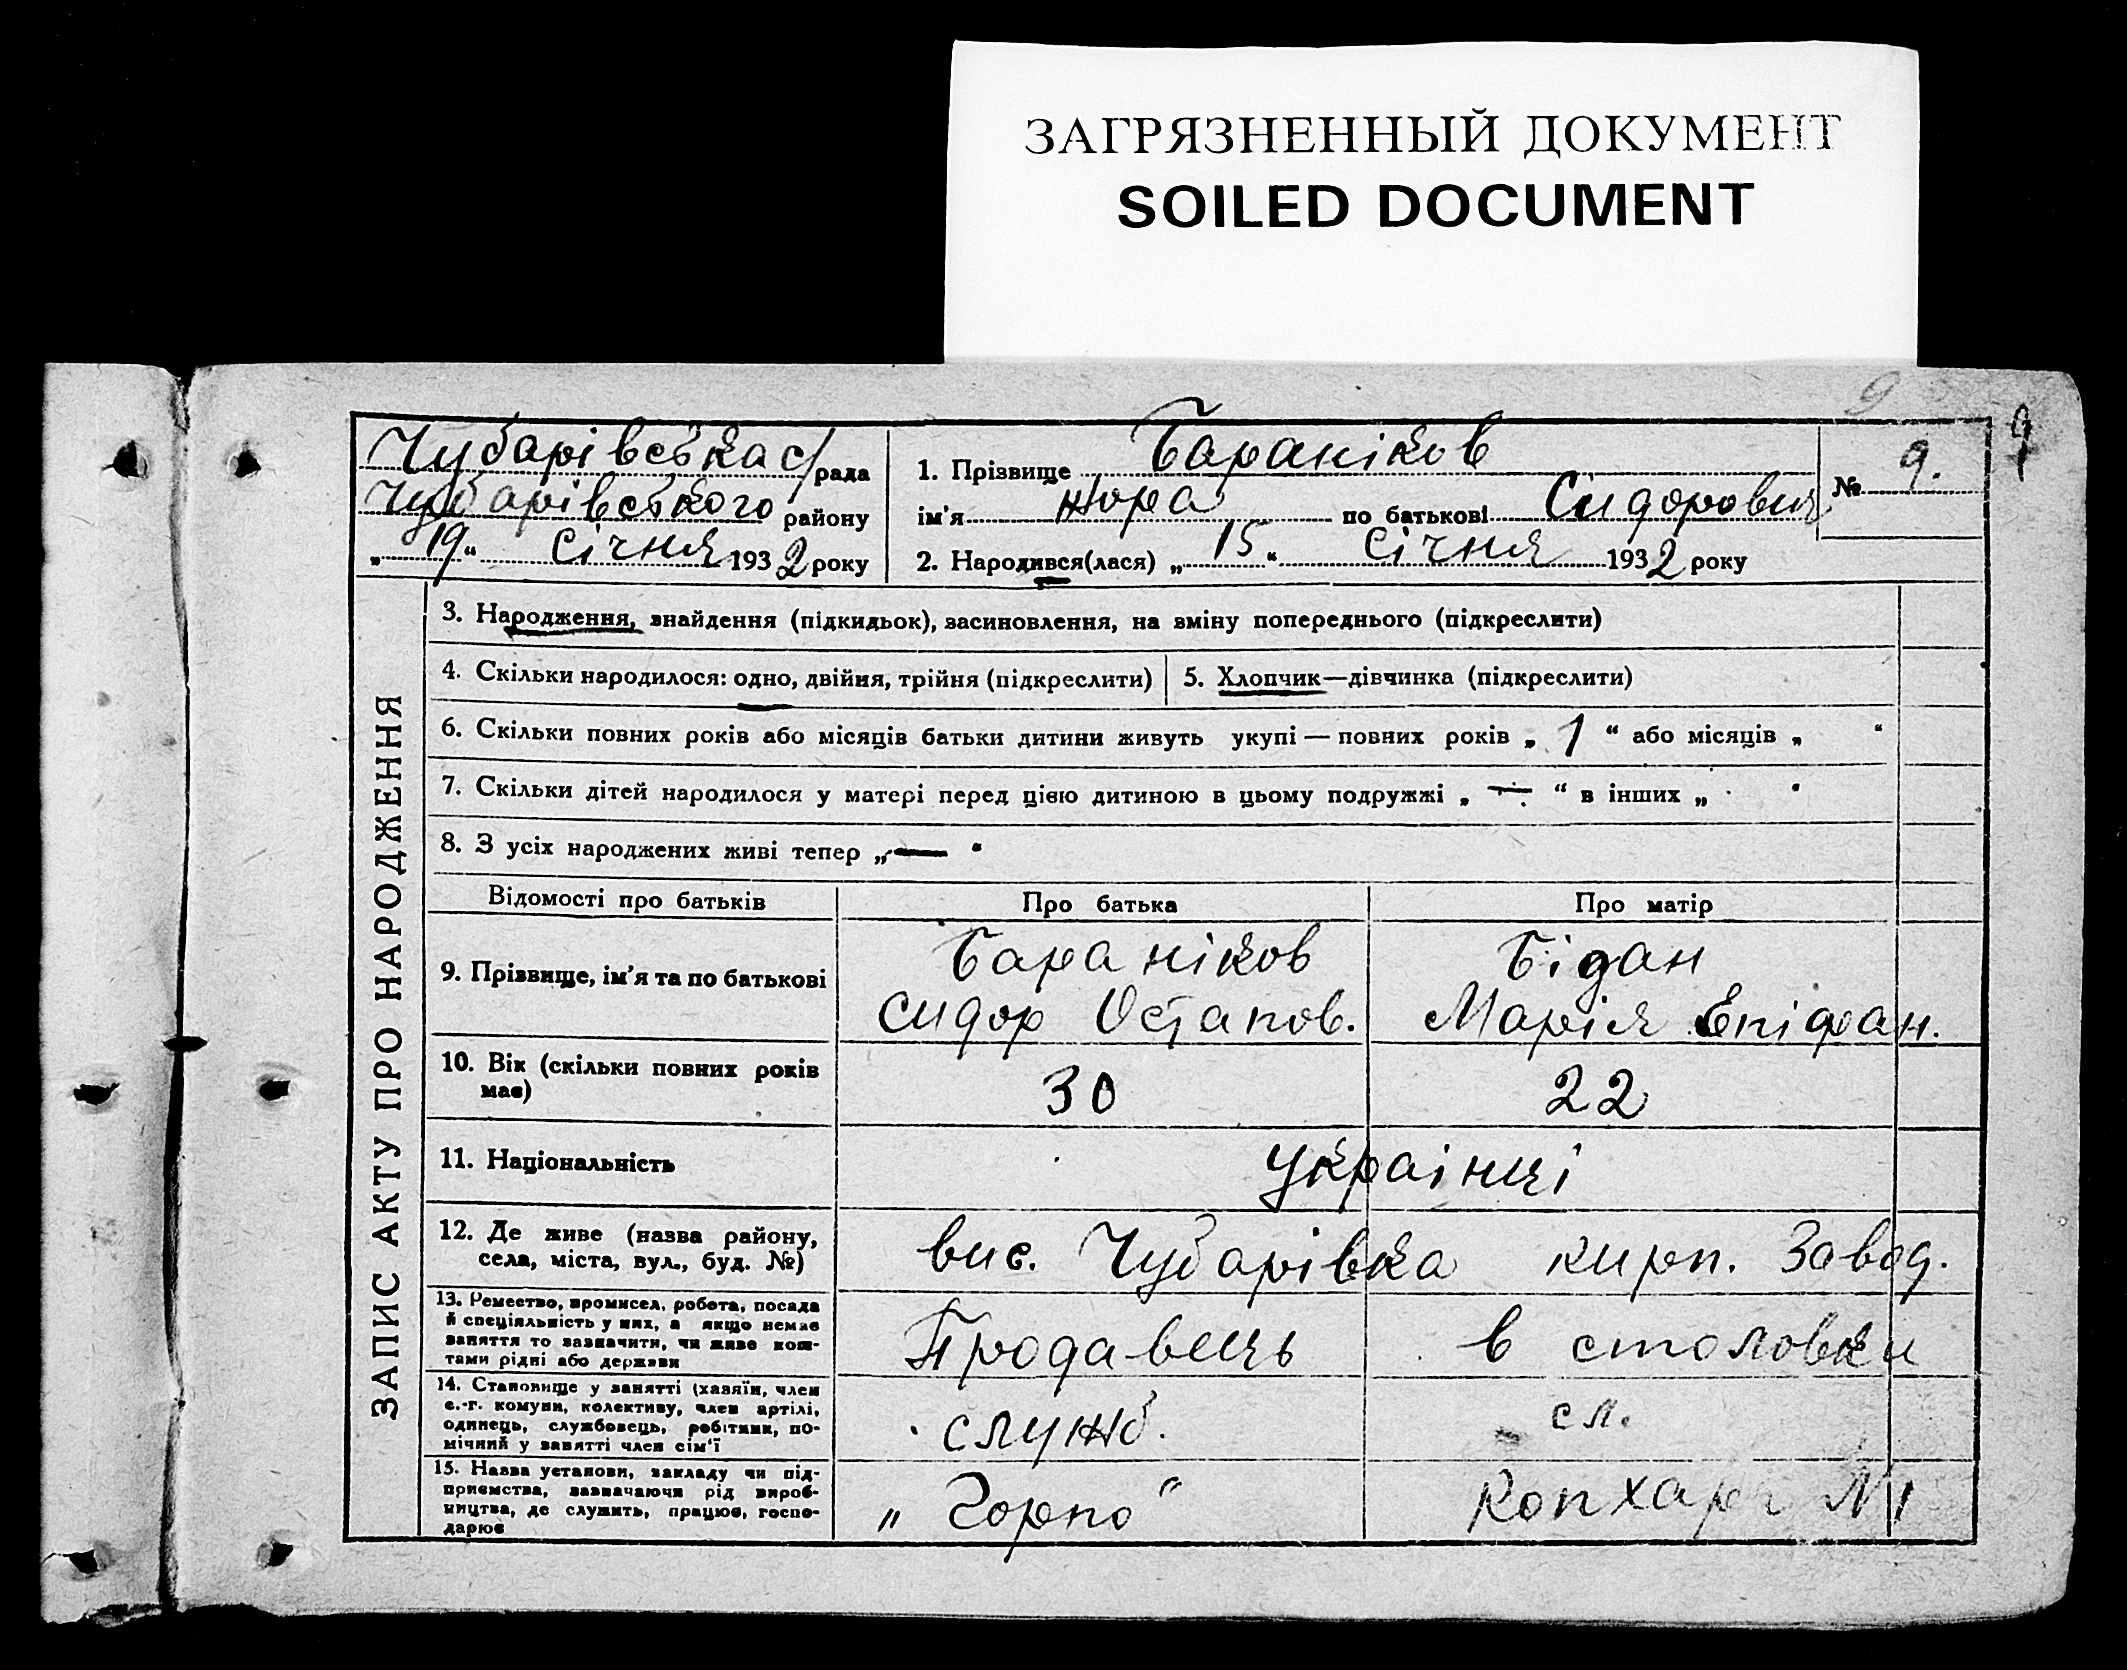 ЗАГРЯЗНЕННЫЙ ДОКУМЕНТ
SOILED DOCUMENT
9
Чубарівська с/рада
Чубарівського району
„19“ січня 1932 року
1. Прізвище Бараніков
ім'я Жора по батькові Сидорович
2. Народився(лася) „15“ січня 1932 року
№ 9.
ЗАПИС АКТУ ПРО НАРОДЖЕННЯ
3. Народження, знайдення (підкидьок), засиновлення, на зміну попереднього (підкреслити)
4. Скільки народилося: одно, двійня, трійня (підкреслити)
5. Хлопчик—дівчинка (підкреслити)
6. Скільки повних років або місяців батьки дитини живуть укупі — повних років „ 1 “ або місяців „ “
7. Скільки дітей народилося у матері перед цією дитиною в цьому подружжі „ — “ в інших „ “
8. З усіх народжених живі тепер „ — “
Відомості про батьків Про батька Про матір
9. Прізвище, ім'я та по батькові
Бараніков
Сидор Остапов.
Бідан
Марія Епіфан.
10. Вік (скільки повних років
має)
30
22
11. Національність
українці
12. Де живе (назва району,
села, міста, вул., буд. №)
вис. Чубарівка кирп. Завод.
13. Ремество, промисел, робота, посада
й спеціяльність у них, а якщо немає
заняття то зазначити, чи живе кош-
тами рідні або держави
Продавець
в столовки
14. Становище у занятті (хазяїн, член
с.-г. комуни, колективу, член артілі,
одинець, службовець, робітник, по-
мічний у занятті член сім'ї
служб.
сл.
15. Назва установи, закладу чи під-
приємства, зазначаючи рід вироб-
ництва, де служить, працює, госпо-
дарює
„Горпо“
Копхарч №1